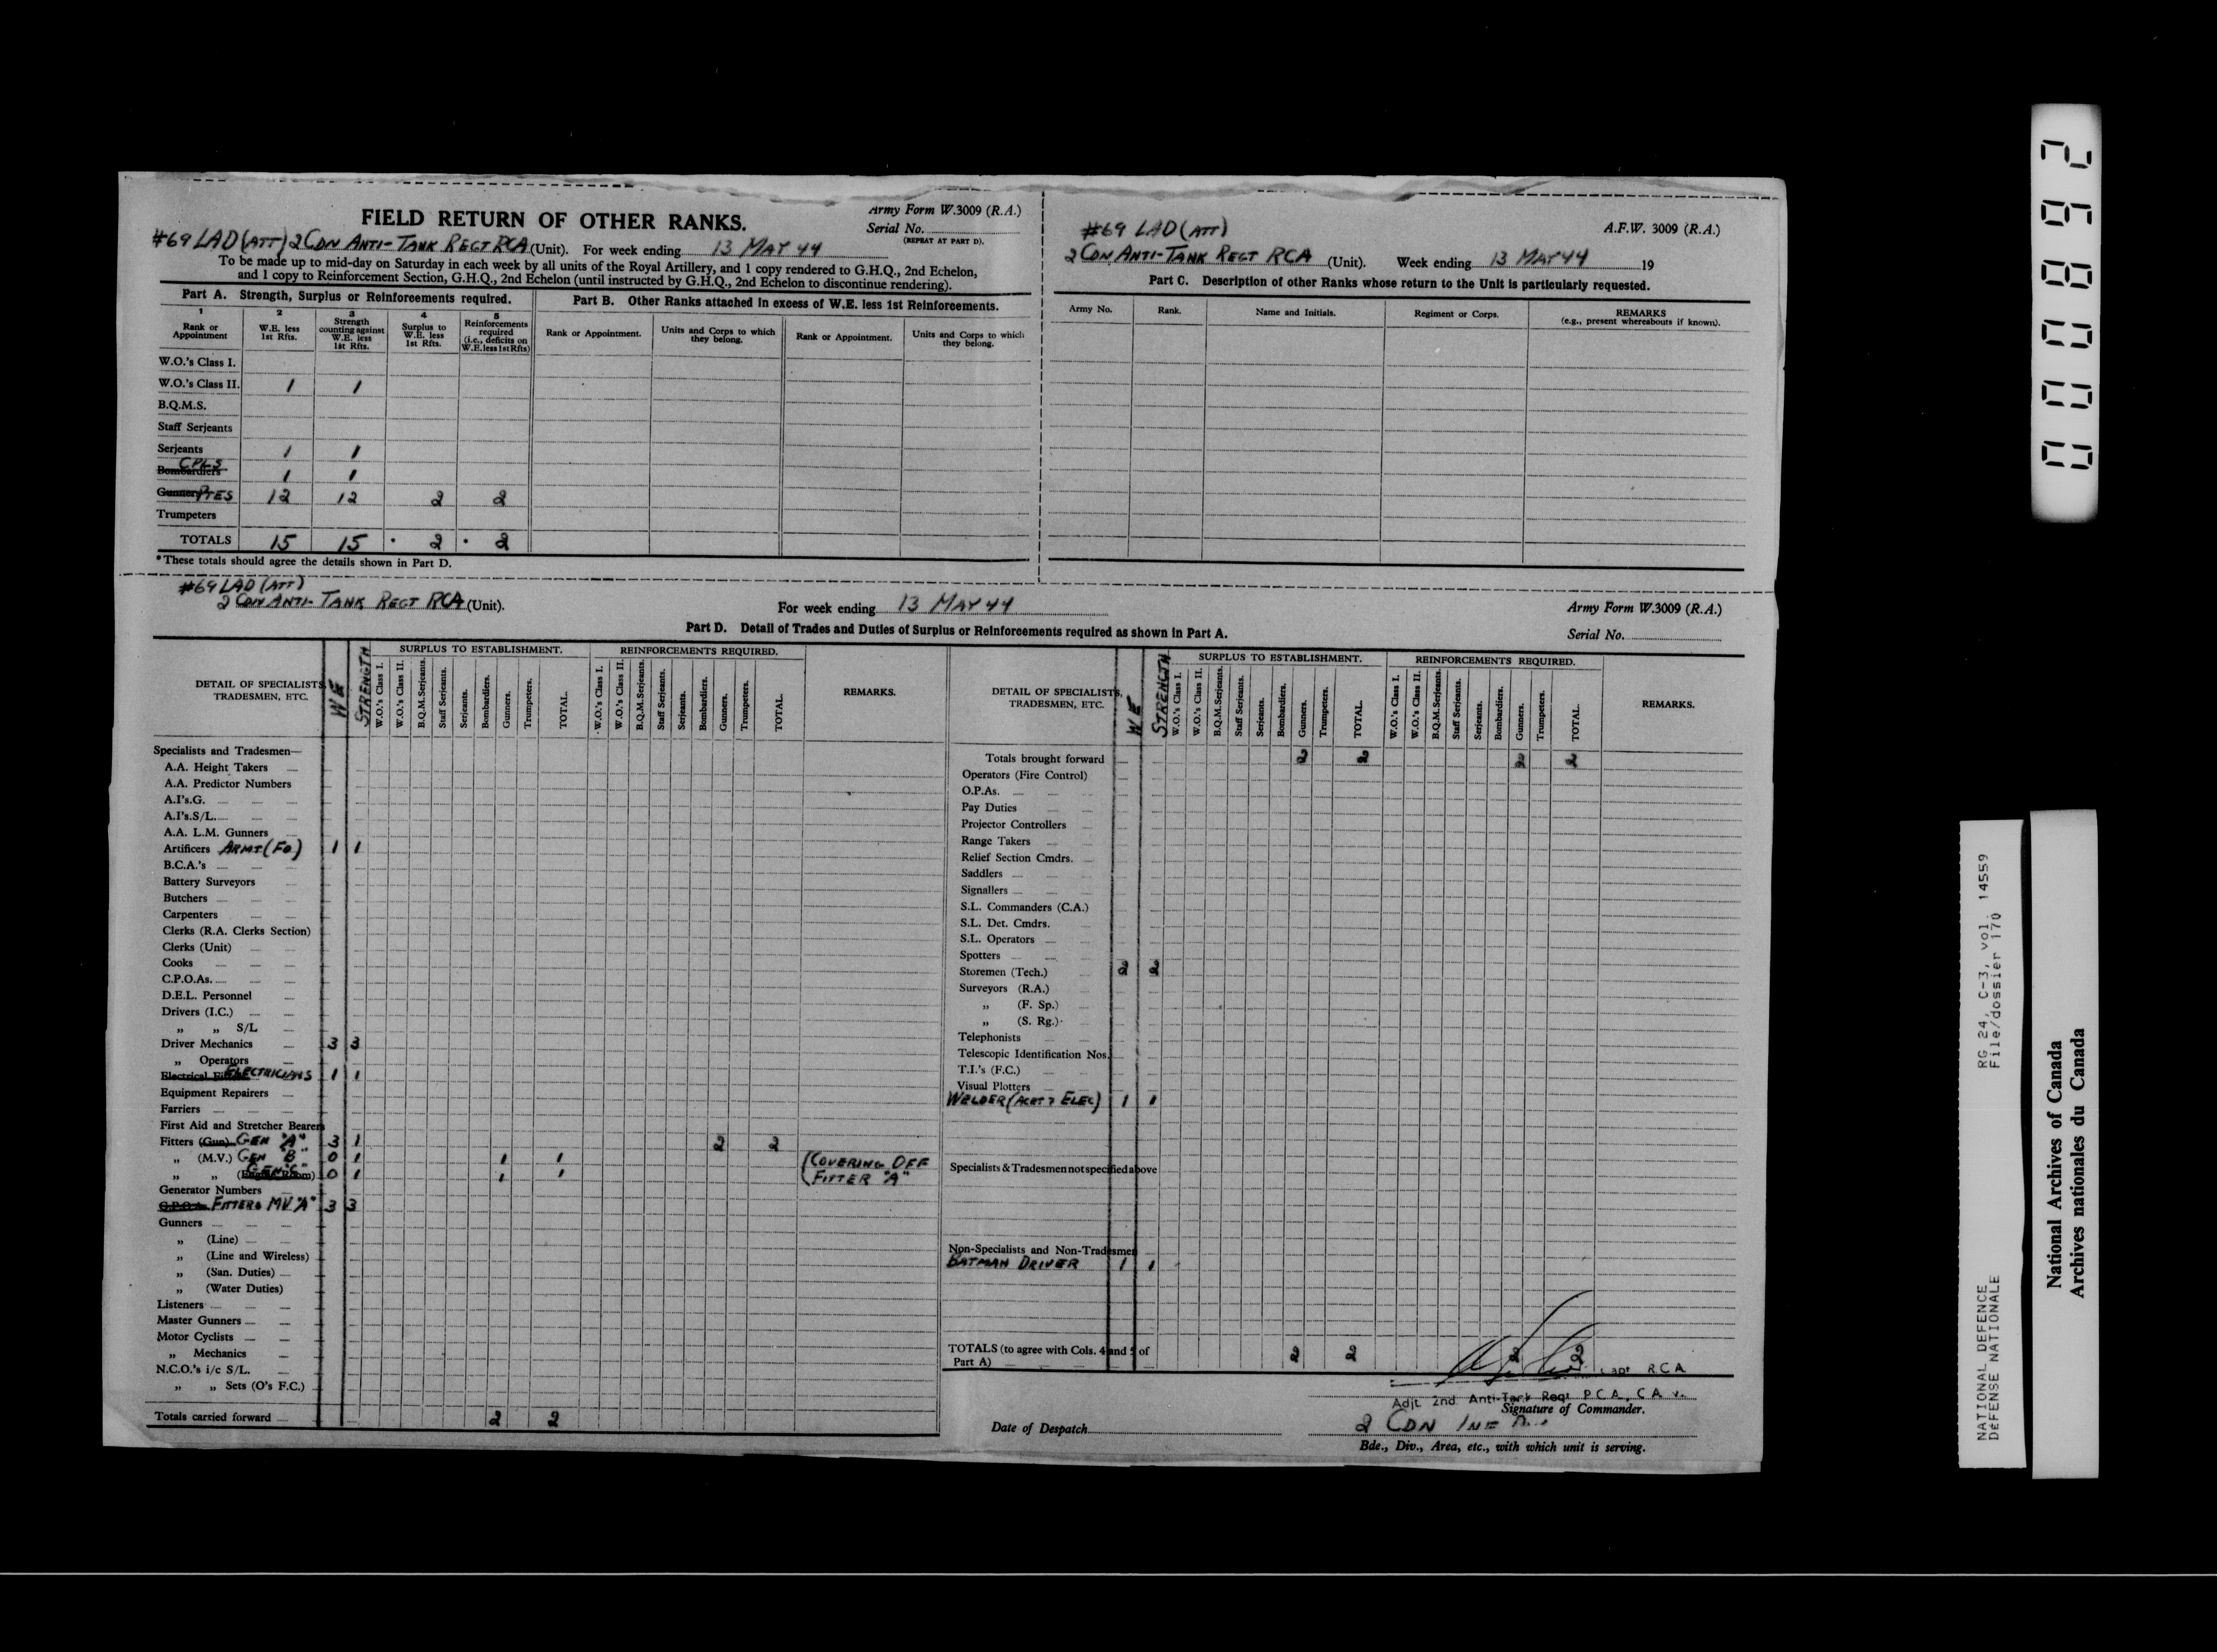 FIELD RETURN OF OTHER RANKS.
Army Form W.3009 (R.A.)
Serial No.
(REPEAT AT PART D).
#69 LAD (ATT) 2 CDN ANTI-TANK REGT RCA (Unit). For week ending 13 MAY 44
To be made up to mid-day on Saturday in each week by all units of the Royal Artillery, and 1 copy rendered to G.H.Q., 2nd Echelon,
and 1 copy to Reinforcement Section, G.H.Q., 2nd Echelon (until instructed by G.H.Q., 2nd Echelon to discontinue rendering).
Part A. Strength, Surplus or Reinforcements required.
1 2 3 4 5
Rank or Appointment
W.E. less 1st Rfts.
Strength counting against W.E. less 1st Rfts.
Surplus to W.E. less 1st Rfts.
Reinforcements required (i.e., deficits on W.E. less 1st Rfts)
W.O.'s Class I.
W.O.'s Class II. 1 1
B.Q.M.S.
Staff Serjeants
Serjeants 1 1
Bombardiers CPLS 1 1
Gunners PTES 12 12 2 2
Trumpeters
TOTALS 15 15 * 2 * 2
* These totals should agree the details shown in Part D.
Part B. Other Ranks attached in excess of W.E. less 1st Reinforcements.
Rank or Appointment.
Units and Corps to which they belong.
Rank or Appointment.
Units and Corps to which they belong.
#69 LAD (ATT)
A.F.W. 3009 (R.A.)
2 CDN ANTI-TANK REGT RCA (Unit). Week ending 13 MAY 44 19
Part C. Description of other Ranks whose return to the Unit is particularly requested.
Army No. Rank. Name and Initials. Regiment or Corps. REMARKS
(e.g., present whereabouts if known).
#69 LAD (ATT)
2 CDN ANTI-TANK REGT RCA (Unit).
For week ending 13 MAY 44
Army Form W.3009 (R.A.)
Serial No.
Part D. Detail of Trades and Duties of Surplus or Reinforcements required as shown in Part A.
DETAIL OF SPECIALISTS, TRADESMEN, ETC.
WE
STRENGTH
SURPLUS TO ESTABLISHMENT.
W.O.'s Class I. W.O.'s Class II. B.Q.M.Serjeants. Staff Serjeants. Serjeants. Bombardiers. Gunners. Trumpeters. TOTAL.
REINFORCEMENTS REQUIRED.
W.O.'s Class I. W.O.'s Class II. B.Q.M.Serjeants. Staff Serjeants. Serjeants. Bombardiers. Gunners. Trumpeters. TOTAL.
REMARKS.
Specialists and Tradesmen—
A.A. Height Takers
A.A. Predictor Numbers
A.I's.G.
A.I's.S/L.
A.A. L.M. Gunners
Artificers ARMT (FD) 1 1
B.C.A.'s
Battery Surveyors
Butchers
Carpenters
Clerks (R.A. Clerks Section)
Clerks (Unit)
Cooks
C.P.O.As.
D.E.L. Personnel
Drivers (I.C.)
„ „ S/L
Driver Mechanics 3 3
„ Operators
Electrical Fitters ELECTRICIANS 1 1
Equipment Repairers
Farriers
First Aid and Stretcher Bearers
Fitters (Gun) GEN "A" 3 1 2 2
„ (M.V.) GEN "B" 0 1 1 1 (COVERING OFF
„ „ GEN "C" 0 1 1 1 (FITTER "A"
Generator Numbers
G.P.O.A. FITTERS MV "A" 3 3
Gunners
„ (Line)
„ (Line and Wireless)
„ (San. Duties)
„ (Water Duties)
Listeners
Master Gunners
Motor Cyclists
„ Mechanics
N.C.O.'s i/c S/L.
„ „ Sets (O's F.C.)
Totals carried forward 2 2
DETAIL OF SPECIALISTS, TRADESMEN, ETC.
WE
STRENGTH
SURPLUS TO ESTABLISHMENT.
W.O.'s Class I. W.O.'s Class II. B.Q.M.Serjeants. Staff Serjeants. Serjeants. Bombardiers. Gunners. Trumpeters. TOTAL.
REINFORCEMENTS REQUIRED.
W.O.'s Class I. W.O.'s Class II. B.Q.M.Serjeants. Staff Serjeants. Serjeants. Bombardiers. Gunners. Trumpeters. TOTAL.
REMARKS.
Totals brought forward 2 2 2 2
Operators (Fire Control)
O.P.As.
Pay Duties
Projector Controllers
Range Takers
Relief Section Cmdrs.
Saddlers
Signallers
S.L. Commanders (C.A.)
S.L. Det. Cmdrs.
S.L. Operators
Spotters
Storemen (Tech.) 2 2
Surveyors (R.A.)
„ (F. Sp.)
„ (S. Rg.)
Telephonists
Telescopic Identification Nos.
T.I.'s (F.C.)
Visual Plotters
WELDER (ACET & ELEC) 1 1
Specialists & Tradesmen not specified above
Non-Specialists and Non-Tradesmen
BATMAN DRIVER 1 1
TOTALS (to agree with Cols. 4 and 5 of Part A) 2 2 2 2
Capt RCA
Adjt 2nd Anti-Tank Regt RCA, CA
Signature of Commander.
Date of Despatch
2 CDN INF
Bde., Div., Area, etc., with which unit is serving.
000892
RG 24, C-3, vol. 14559
File/dossier 170
NATIONAL DEFENCE
DÉFENSE NATIONALE
National Archives of Canada
Archives nationales du Canada